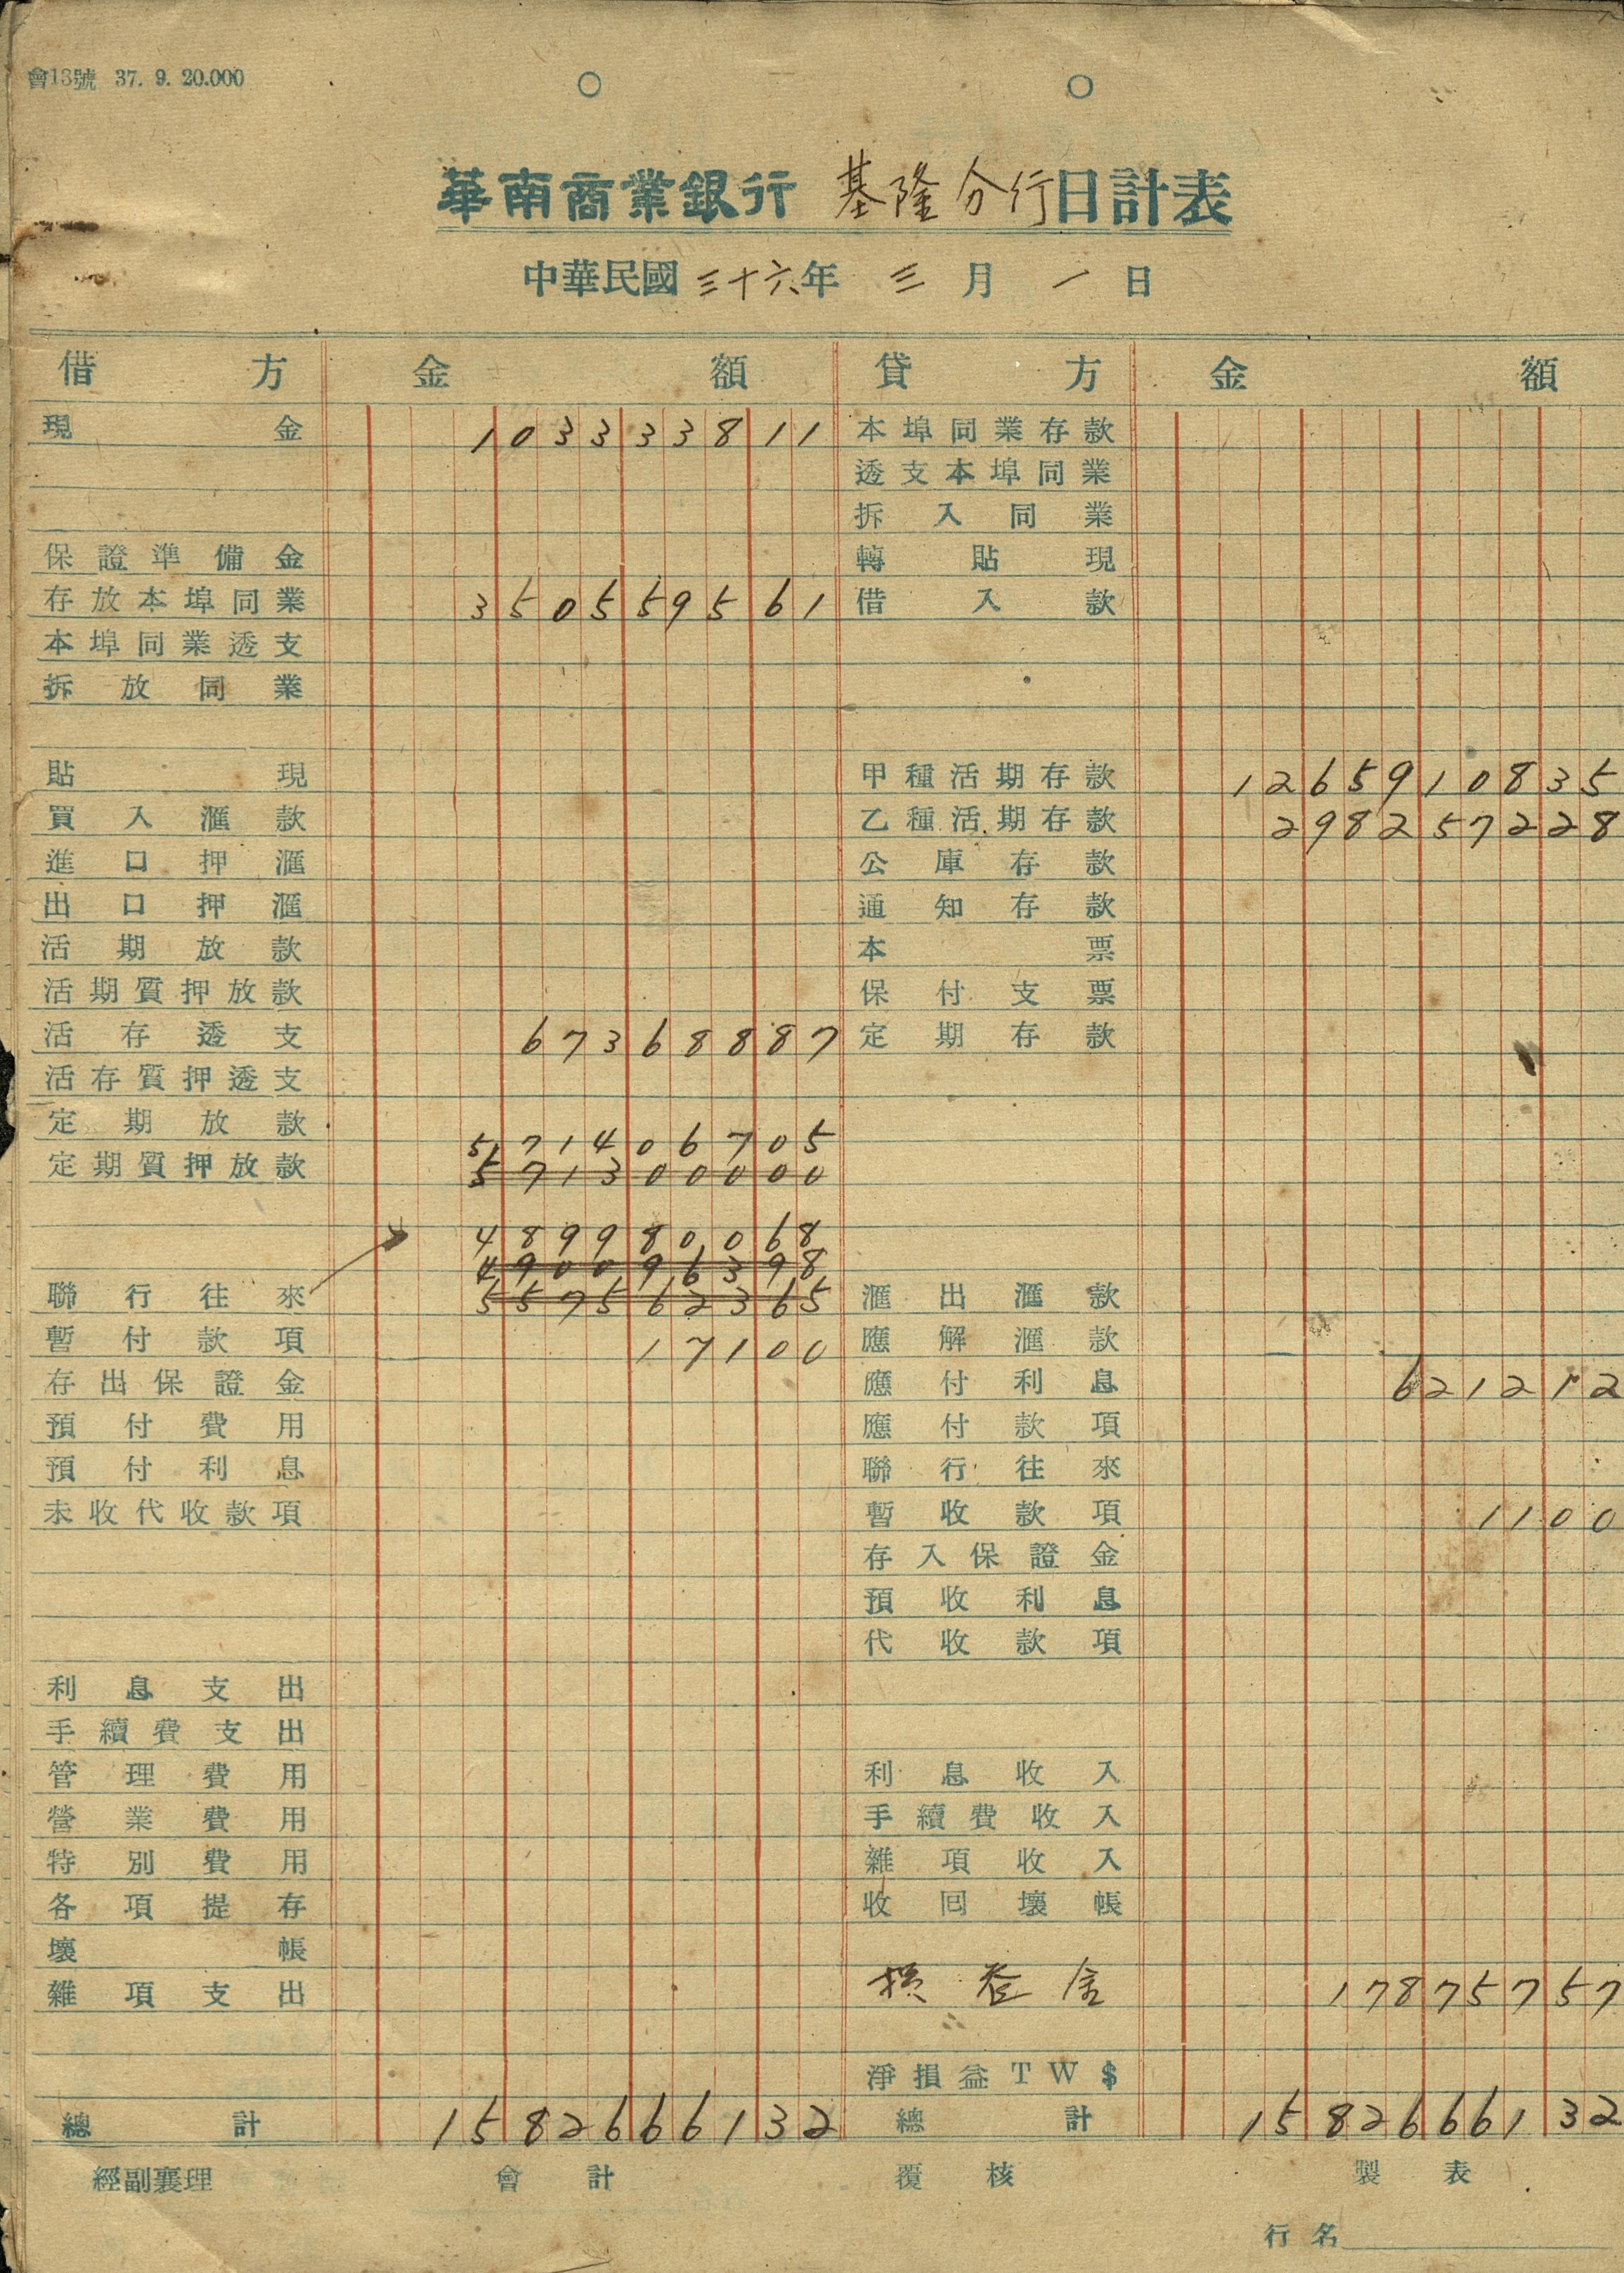 會13號 37. 9. 20.000
華南商業銀行 基隆分行日計表
中華民國三十六年 三月一日
借方 金額 貸方 金額
現金 1033333811 本埠同業存款
透支本埠同業
拆入同業
保證準備金 轉貼現
存放本埠同業 350559561 借入款
本埠同業透支
拆放同業
貼現 甲種活期存款 1265910835
買入滙款 乙種活期存款 298257228
進口押滙 公庫存款
出口押滙 通知存款
活期放款 本票
活期質押放款 保付支票
活存透支 67368887 定期存款
活存質押透支
定期放款
571406705
定期質押放款 571300000
489980068
490096398
聯行往來 557562365 滙出滙款
暫付款項 17100 應解滙款
存出保證金 應付利息 621212
預付費用 應付款項
預付利息 聯行往來
未收代收款項 暫收款項 1100
存入保證金
預收利息
代收款項
利息支出
手續費支出
管理費用 利息收入
營業費用 手續費收入
特別費用 雜項收入
各項提存 收回壞帳
壞帳
雜項支出 損益金 17875757
淨損益TW$
總計 1582666132 總計 1582666132
經副襄理 會計 覆核 製表
行名